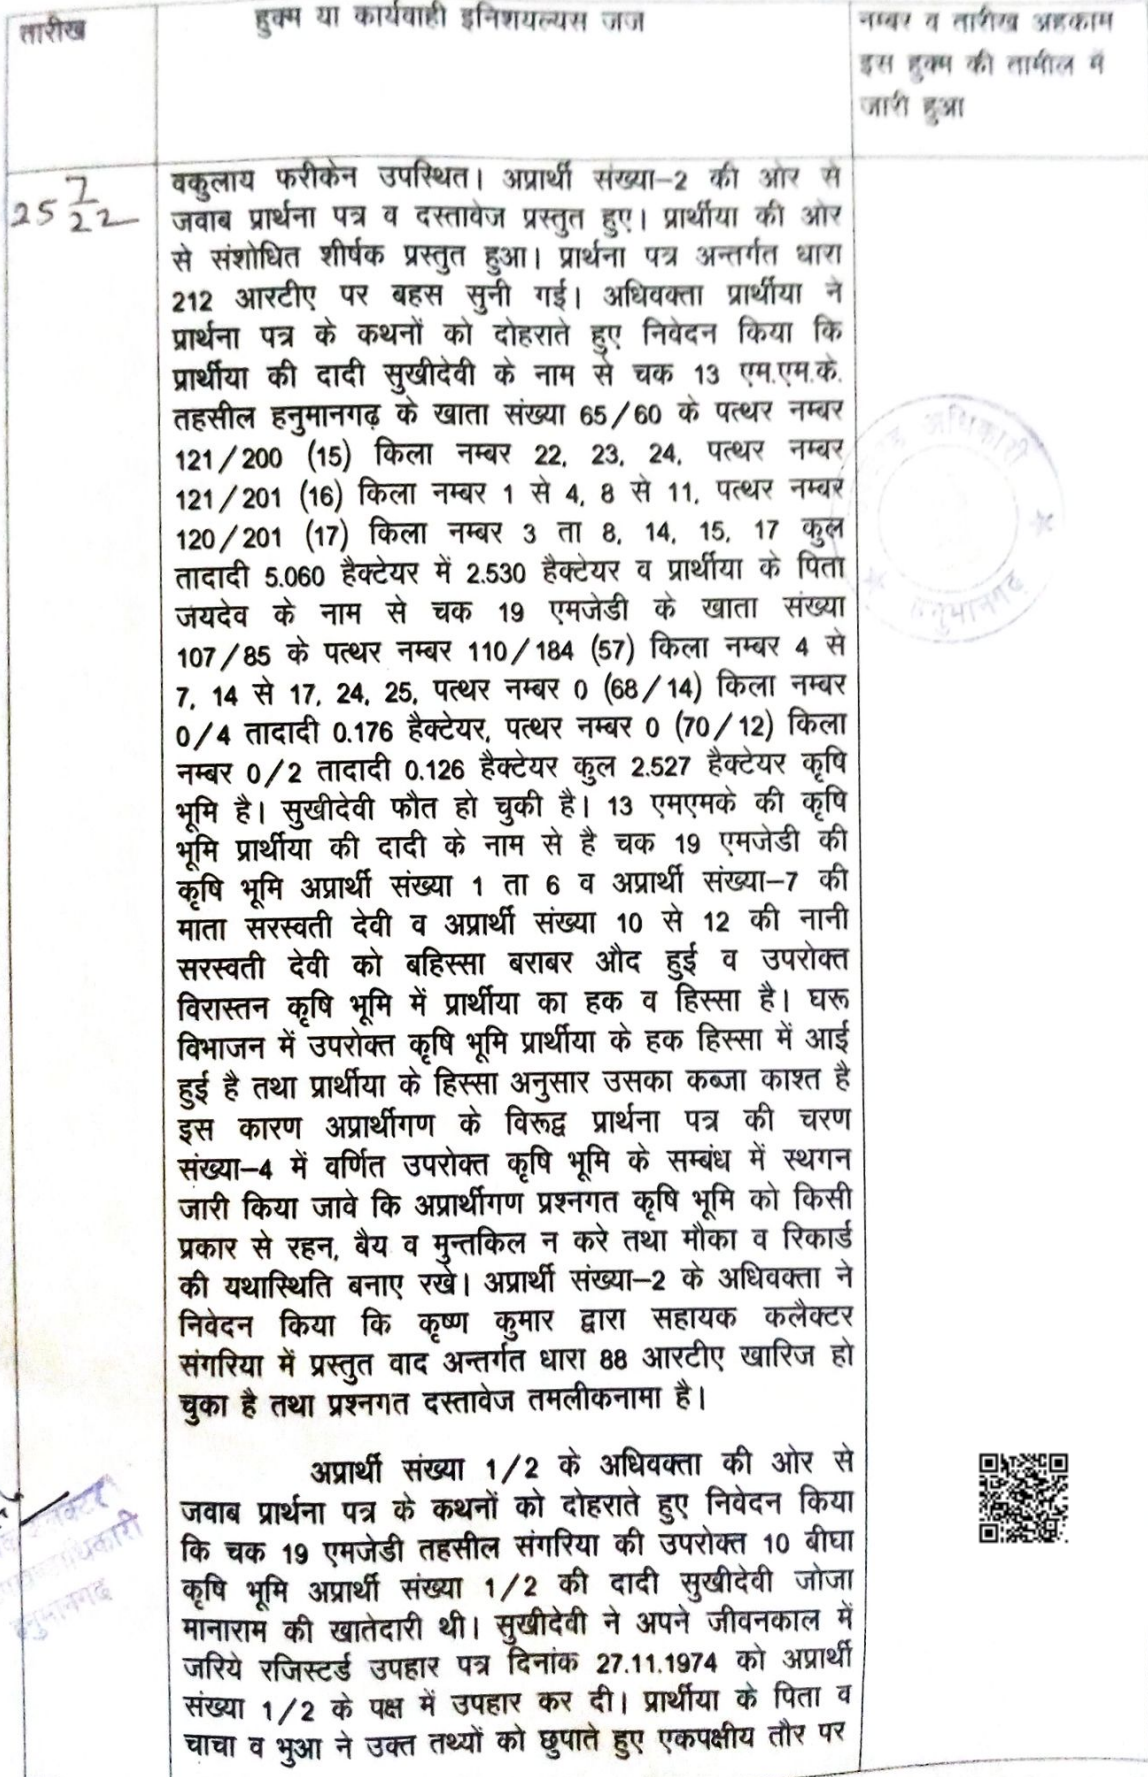 तारीख
हुक्म या कार्यवाही इनिशयल्यस जज
नम्बर व तारीख अहकाम
इस हुक्म की तामील में
जारी हुआ
25 7/22
वकुलाय फरीकेन उपस्थित। अप्रार्थी संख्या-2 की ओर से
जवाब प्रार्थना पत्र व दस्तावेज प्रस्तुत हुए। प्रार्थीया की ओर
से संशोधित शीर्षक प्रस्तुत हुआ। प्रार्थना पत्र अन्तर्गत धारा
212 आरटीए पर बहस सुनी गई। अधिवक्ता प्रार्थीया ने
प्रार्थना पत्र के कथनों को दोहराते हुए निवेदन किया कि
प्रार्थीया की दादी सुखीदेवी के नाम से चक 13 एम.एम.के.
तहसील हनुमानगढ़ के खाता संख्या 65/60 के पत्थर नम्बर
121/200 (15) किला नम्बर 22, 23, 24, पत्थर नम्बर
121/201 (16) किला नम्बर 1 से 4, 8 से 11, पत्थर नम्बर
120/201 (17) किला नम्बर 3 ता 8, 14, 15, 17 कुल
तादादी 5.060 हैक्टेयर में 2.530 हैक्टेयर व प्रार्थीया के पिता
जयदेव के नाम से चक 19 एमजेडी के खाता संख्या
107/85 के पत्थर नम्बर 110/184 (57) किला नम्बर 4 से
7, 14 से 17, 24, 25, पत्थर नम्बर 0 (68/14) किला नम्बर
0/4 तादादी 0.176 हैक्टेयर, पत्थर नम्बर 0 (70/12) किला
नम्बर 0/2 तादादी 0.126 हैक्टेयर कुल 2.527 हैक्टेयर कृषि
भूमि है। सुखीदेवी फौत हो चुकी है। 13 एमएमके की कृषि
भूमि प्रार्थीया की दादी के नाम से है चक 19 एमजेडी की
कृषि भूमि अप्रार्थी संख्या 1 ता 6 व अप्रार्थी संख्या-7 की
माता सरस्वती देवी व अप्रार्थी संख्या 10 से 12 की नानी
सरस्वती देवी को बहिस्सा बराबर औद हुई व उपरोक्त
विरास्तन कृषि भूमि में प्रार्थीया का हक व हिस्सा है। घरू
विभाजन में उपरोक्त कृषि भूमि प्रार्थीया के हक हिस्सा में आई
हुई है तथा प्रार्थीया के हिस्सा अनुसार उसका कब्जा काश्त है
इस कारण अप्रार्थीगण के विरूद्व प्रार्थना पत्र की चरण
संख्या-4 में वर्णित उपरोक्त कृषि भूमि के सम्बंध में स्थगन
जारी किया जावे कि अप्रार्थीगण प्रश्नगत कृषि भूमि को किसी
प्रकार से रहन, बैय व मुन्तकिल न करे तथा मौका व रिकार्ड
की यथास्थिति बनाए रखे। अप्रार्थी संख्या-2 के अधिवक्ता ने
निवेदन किया कि कृष्ण कुमार द्वारा सहायक कलैक्टर
संगरिया में प्रस्तुत वाद अन्तर्गत धारा 88 आरटीए खारिज हो
चुका है तथा प्रश्नगत दस्तावेज तमलीकनामा है।
अप्रार्थी संख्या 1/2 के अधिवक्ता की ओर से
जवाब प्रार्थना पत्र के कथनों को दोहराते हुए निवेदन किया
कि चक 19 एमजेडी तहसील संगरिया की उपरोक्त 10 बीघा
कृषि भूमि अप्रार्थी संख्या 1/2 की दादी सुखीदेवी जोजा
मानाराम की खातेदारी थी। सुखीदेवी ने अपने जीवनकाल में
जरिये रजिस्टर्ड उपहार पत्र दिनांक 27.11.1974 को अप्रार्थी
संख्या 1/2 के पक्ष में उपहार कर दी। प्रार्थीया के पिता व
चाचा व भुआ ने उक्त तथ्यों को छुपाते हुए एकपक्षीय तौर पर
अधिकारी
हनुमानगढ़
हनुमानगढ